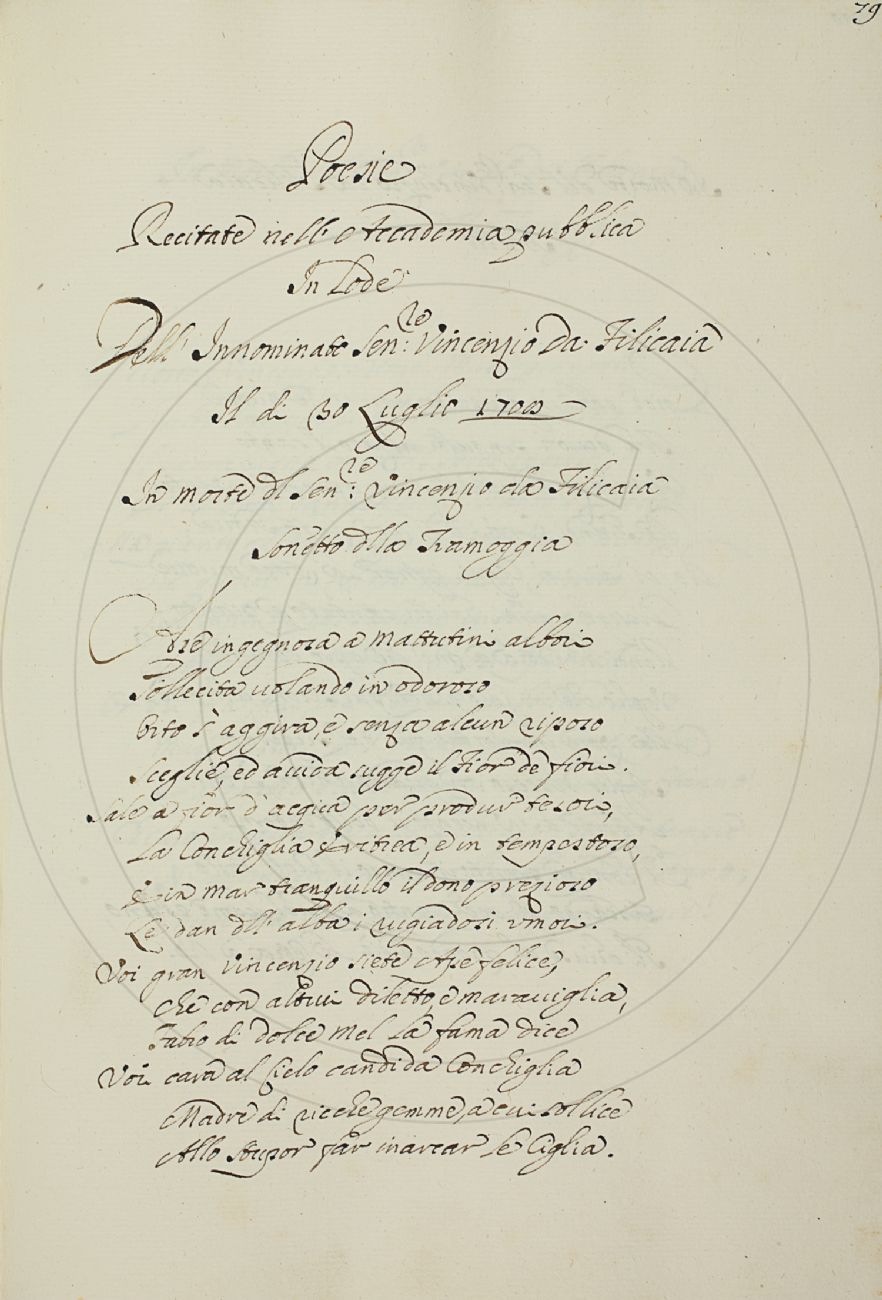 79
Poesie
Recitate nell' Accademia pubblica
In Lode
Dell' Innominato Sen:re Vincenzio Da Filicaia
Il di 30 Luglio 1708
In morte dl Sen:re Vincenzio da Filicaia
Sonetto dlla Tramoggia
Ape ingegnosa a mattutini albori
Sollecita volando in odoroso
Orto s' aggira, e senza alcun riposo
Sceglie, ed avida sugge il Fior de fiori.
Sale a fior d' acqua per produr tesori,
La Conchiglia Eritrea, e in tempestoso,
E in mar tranquillo il dono prezioso
Le dan dll' alba i rugiadosi umori.
Voi gran Vincenzio siete Ape felice,
Che con altrui diletto, e maraviglia,
Fabro di dolce mel la fama dice
Voi cara al Cielo candida Conchiglia
Madre di ricche gemme, a cui sol lice
Allo stupor far inarcar le Ciglia.